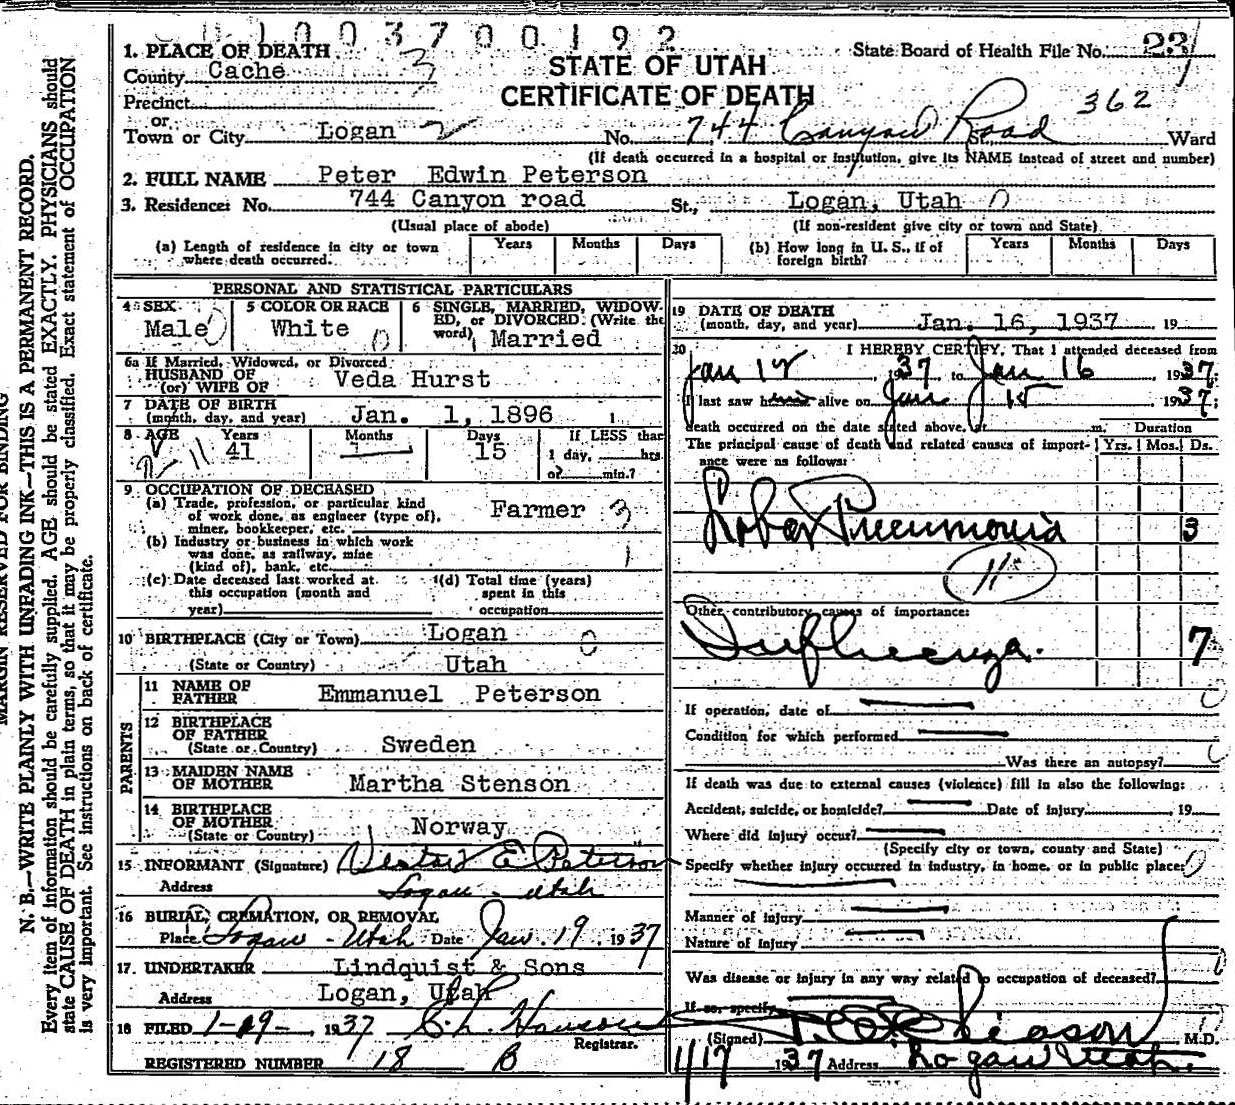 0 1 0 0 3 7 0 0 1 9 2
1. PLACE OF DEATH
State Board of Health File No. 23
County Cache 3
STATE OF UTAH
Precinct
CERTIFICATE OF DEATH
362
or
Town or City Logan 2 No. 744 Canyon Road St., Ward
(If death occurred in a hospital or institution, give its NAME instead of street and number)
2. FULL NAME Peter Edwin Peterson
3. Residence: No. 744 Canyon road St., Logan, Utah 0
(Usual place of abode) (If non-resident give city or town and State)
(a) Length of residence in city or town where death occurred. Years Months Days
(b) How long in U. S., if of foreign birth? Years Months Days
PERSONAL AND STATISTICAL PARTICULARS
4 SEX Male 0
5 COLOR OR RACE White 0
6 SINGLE, MARRIED, WIDOW-
ED, or DIVORCED. (Write the
word) Married
6a If Married, Widowed, or Divorced
HUSBAND OF
(or) WIFE OF Veda Hurst
7 DATE OF BIRTH
(month, day, and year) Jan. 1, 1896
8 AGE Years Months Days If LESS than
41 15 1 day, hrs.
or min.?
9 OCCUPATION OF DECEASED
(a) Trade, profession, or particular kind
of work done, as engineer (type of),
miner, bookkeeper, etc. Farmer 3
(b) Industry or business in which work
was done, as railway, mine
(kind of), bank, etc. 1
(c) Date deceased last worked at
this occupation (month and
year)
(d) Total time (years)
spent in this
occupation
10 BIRTHPLACE (City or Town) Logan 0
(State or Country) Utah
PARENTS
11 NAME OF
FATHER Emmanuel Peterson
12 BIRTHPLACE
OF FATHER
(State or Country) Sweden
13 MAIDEN NAME
OF MOTHER Martha Stenson
14 BIRTHPLACE
OF MOTHER
(State or Country) Norway
15 INFORMANT (Signature) E Peterson
Address Logan - Utah
16 BURIAL, CREMATION, OR REMOVAL
Place Logan - Utah Date Jan. 19, 1937
17. UNDERTAKER Lindquist & Sons
Address Logan, Utah
18 FILED 1-19- 1937
Registrar.
REGISTERED NUMBER 18 B
19 DATE OF DEATH
(month, day, and year) Jan. 16, 1937 19
20 I HEREBY CERTIFY, That I attended deceased from
Jan 12, 1937 to Jan 16 1937;
I last saw him alive on Jan 15 1937;
death occurred on the date stated above, at m. Duration
The principal cause of death and related causes of import-
ance were as follows: Yrs. Mos. Ds.
Lobar Pneumonia 3
Other contributory causes of importance:
Influenza. 7
If operation, date of
Condition for which performed
Was there an autopsy?
If death was due to external causes (violence) fill in also the following:
Accident, suicide, or homicide? Date of injury 19
Where did injury occur?
(Specify city or town, county and State)
Specify whether injury occurred in industry, in home, or in public place: 0
Manner of injury
Nature of injury
Was disease or injury in any way related to occupation of deceased?
If so, specify
(Signed) M.D.
1/17 1937 Address Logan Utah.
MARGIN RESERVED FOR BINDING
N. B.—WRITE PLAINLY WITH UNFADING INK—THIS IS A PERMANENT RECORD.
Every item of information should be carefully supplied. AGE should be stated EXACTLY. PHYSICIANS should
state CAUSE OF DEATH in plain terms, so that it may be properly classified. Exact statement of OCCUPATION
is very important. See instructions on back of certificate.